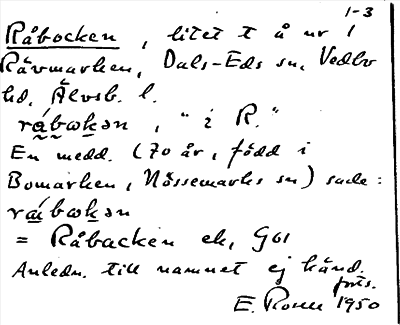 1-3
Råbocken, litet t å nr 1
Rävmarken, Dals-Eds sn, Vedbo
hd, Älvsb. l.
råbωkən, "i R."
En medd. (70 år, född i
Bomarken, Nössemarks sn) sade:
råbωkən
= Råbacken ek, G61
Anledn. till namnet ej känd.
forts.
E. Rosell 1950